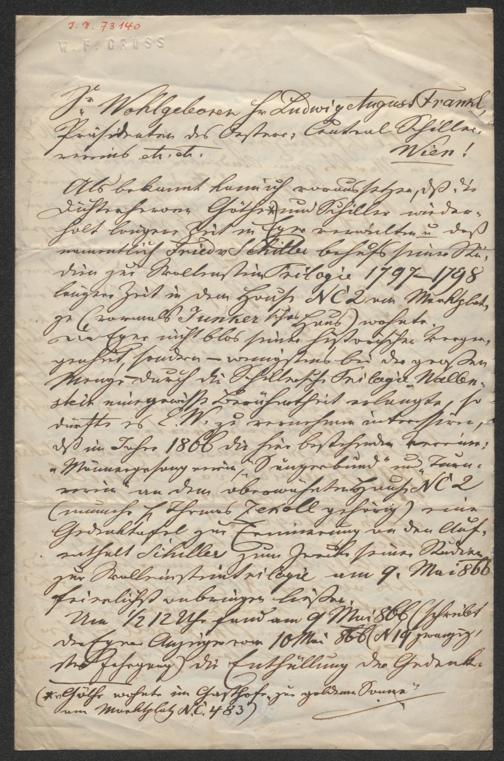 I. N. 73140
W. F. GROSS
Sr. Wohlgeboren Hr Ludwig August Frankl,
Präsidenten des Oesterr: Central Schiller-
vereins etc. etc.
Wien!
Als bekannt kann ich voraussetzen, daß die
Dichterheroen Göthe *) und Schiller wieder-
holt längere Zeit in Eger verweilten u daß
namentlich Friedr Schiller behufs seiner Stu-
dien zur Wallenstein Trilogie 1797–1798
längere Zeit in dem Hause NC 2 am Marktplat-
ze (vormals Junker Haus) wohnte.
Da Eger nicht blos seiner historischen Vergan-
genheit, sondern – wenigstens bei der großen
Menge durch die Schillersche Trilogie „Wallen-
stein eine gewisse Berühmtheit erlangte, so
dürfte es E. W. zu vernehmen interessiren,
daß im Jahre 1866 die hier bestehenden Vereine:
„Männergesangverein", „Sängerbund" und „Turn-
verein" an dem oberwähnten Hause NC 2
(nunmehr H Thomas gehörig) eine
Gedenktafel zur Erinnerung an den Auf-
enthalt Schiller zum Zwecke seiner Studien
zur Wallensteintrilogie am 9. Mai 866
feierlichst anbringen ließen.
Um ½ 12 Uhr fand am 9 Mai 866 (schreibt
der Egerer Anzeiger vom 10 Mai 866 (N 19 zwanzig-
ster Jahrgang) die Enthüllung der Gedenk-
(*) Göthe wohnte im Gasthofe „zur goldenen Sonne"
am Marktplatz N.C. 483)